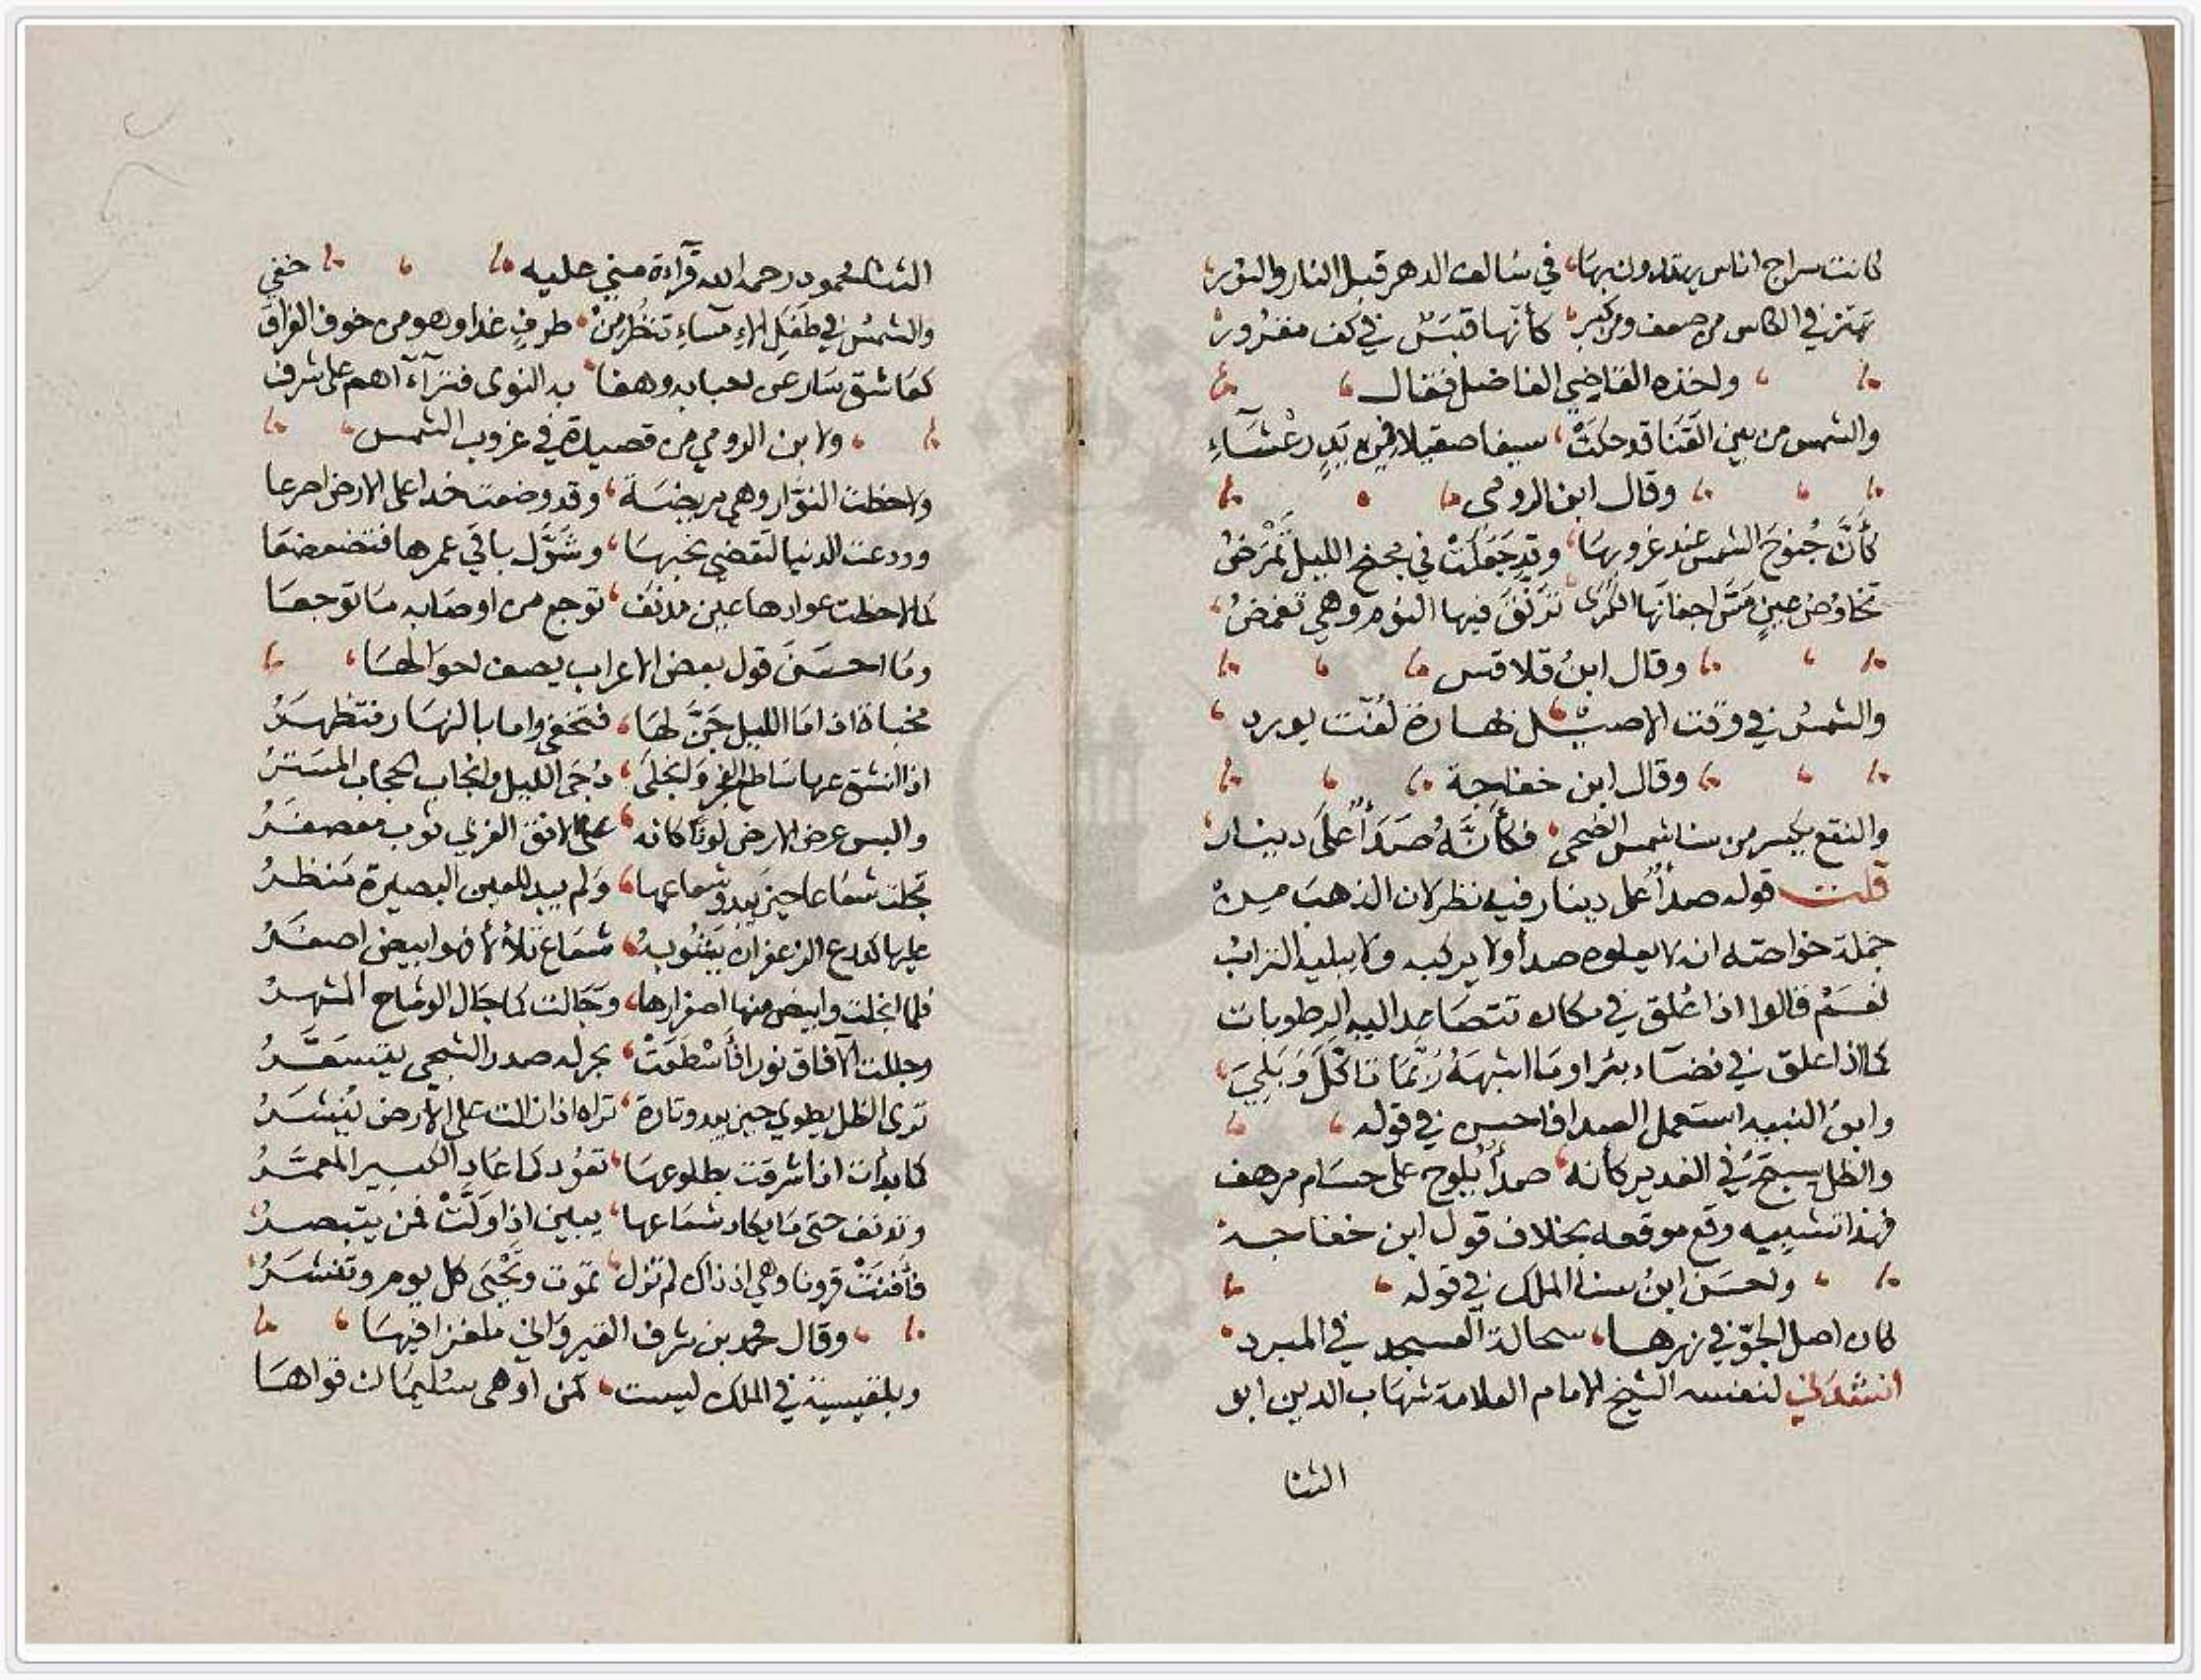 كانت سراج اناس يهتدون بها، في سالف الدهر قبل النار والنور
تهتز في الكاس من ضعف ومن كبر، كأنها قبس في كف مقرور
واخذه القاضي الفاضل فقال
والشمس من بين القنا قد حكت، سيفا صقيلا في يد رعشاء
وقال ابن الرومي
كأنَّ جُنوحَ الشمس عند غروبها، وقد جَعَلَتْ في مجنح الليل تَمْرَضُ
تخاوُض عينٍ مَسَّ اجفانها الكرى، تَرَنَّقَ فيها النوم وهي تغمضُ
وقال ابنُ قلاقس
والشمسُ في وقت الاصيل بهارة لُفّت بورد
وقال ابن خفاجة
والنقع يكسر من سنا شمس الضحى، فكأنَّهُ صَدَأٌ على دينار
قلت قوله صدأ على دينار فيه نظر لان الذهب من
جملة خواصه انه لا يعلوه صدأ ولا يركبه ولا يبليه الترابُ
نعمْ قالوا اذا عُلق في مكان تتصاعد اليه الرطوبات
كما اذا علق في فضاء بئر او ما اشبهه رُبَّمَا تاكَّلَ وَبَلِيَ
وابنُ النبيه استعمل الصدا فاحسن في قوله
والظل يسبح في الغدير كانه، صدأٌ يلوح على حسام مرهف
فهذا تشبيه وقع موقعه بخلاف قول ابن خفاجة
واحسَن ابنُ سنا الملك في قوله
كان اصل الجوّ في نهرها، سحالة العسجد في المبرد
انشدني لنفسه الشيخ الامام العلامة شهاب الدين ابو
الثنا
الثنا محمود رحمه الله قراءة مني عليه خفي
والشمسُ في طفَلِ الامساءِ تنظُر مِنْ، طرفٍ غدا وهو من خوف الفراق
كعاشق سار عن احبابه وهفا، به النوى فتراآهم على شرف
ولابن الرومي من قصيدة في غروب الشمس
ولاحظت النوّار وهي مريضة، وقد وضعت خدا على الارض اضرعا
وودعت الدنيا لتقضي نحبها، وشَوَّل باقي عمرها فتضعضعا
كما لاحظت عوادها عين مدنف، توجع من اوصابه ما توجعا
وما احسَنَ قول بعض الاعراب يصف احوالها
مخباة اذا ما الليل جَنَّ لها، فتخفى واما بالنهار فتظهرُ
اذا انشق عنها ساطع الفجر وانجلى، دُجَى الليل وانجاب الحجاب المستّرُ
والبس عرض الارض لونًا كانه، على الافق الغربي ثوب معصفرُ
تجلت شعاعا حين يبدو شعاعها، ولم يبد للعين البصيرة منظرُ
عليها كردع الزعفران يشوبه، شعاع تلألأ فهو ابيض اصفرُ
فلما انجلت وابيض منها اصفرارها، وجَالت كما جَال الوشاح المشهرُ
وجللت الآفاق نورا فأسْطَعَتْ، بحر له صدر الضحى يتسعّرُ
ترى الظل يطوى حين يبدو وتارة، تراه اذا زالت على الأرض يُنشرُ
كما بدأت اذا اشرقت بطلوعها، تعُود كما عاد الكبير المعمّرُ
وتدنف حتى ما يكاد شعاعها، يبين اذا وَلَّتْ لمن يتبصرُ
فأفنَتْ قرونا وهي اذ ذاك لم تزل، تموت وتَحْيَى كل يوم وتنشرُ
وقال محمد بن شرف القيرواني ملغزا فيها
وبلقيسية في الملك ليست، كمن اوهى سليمان قواها